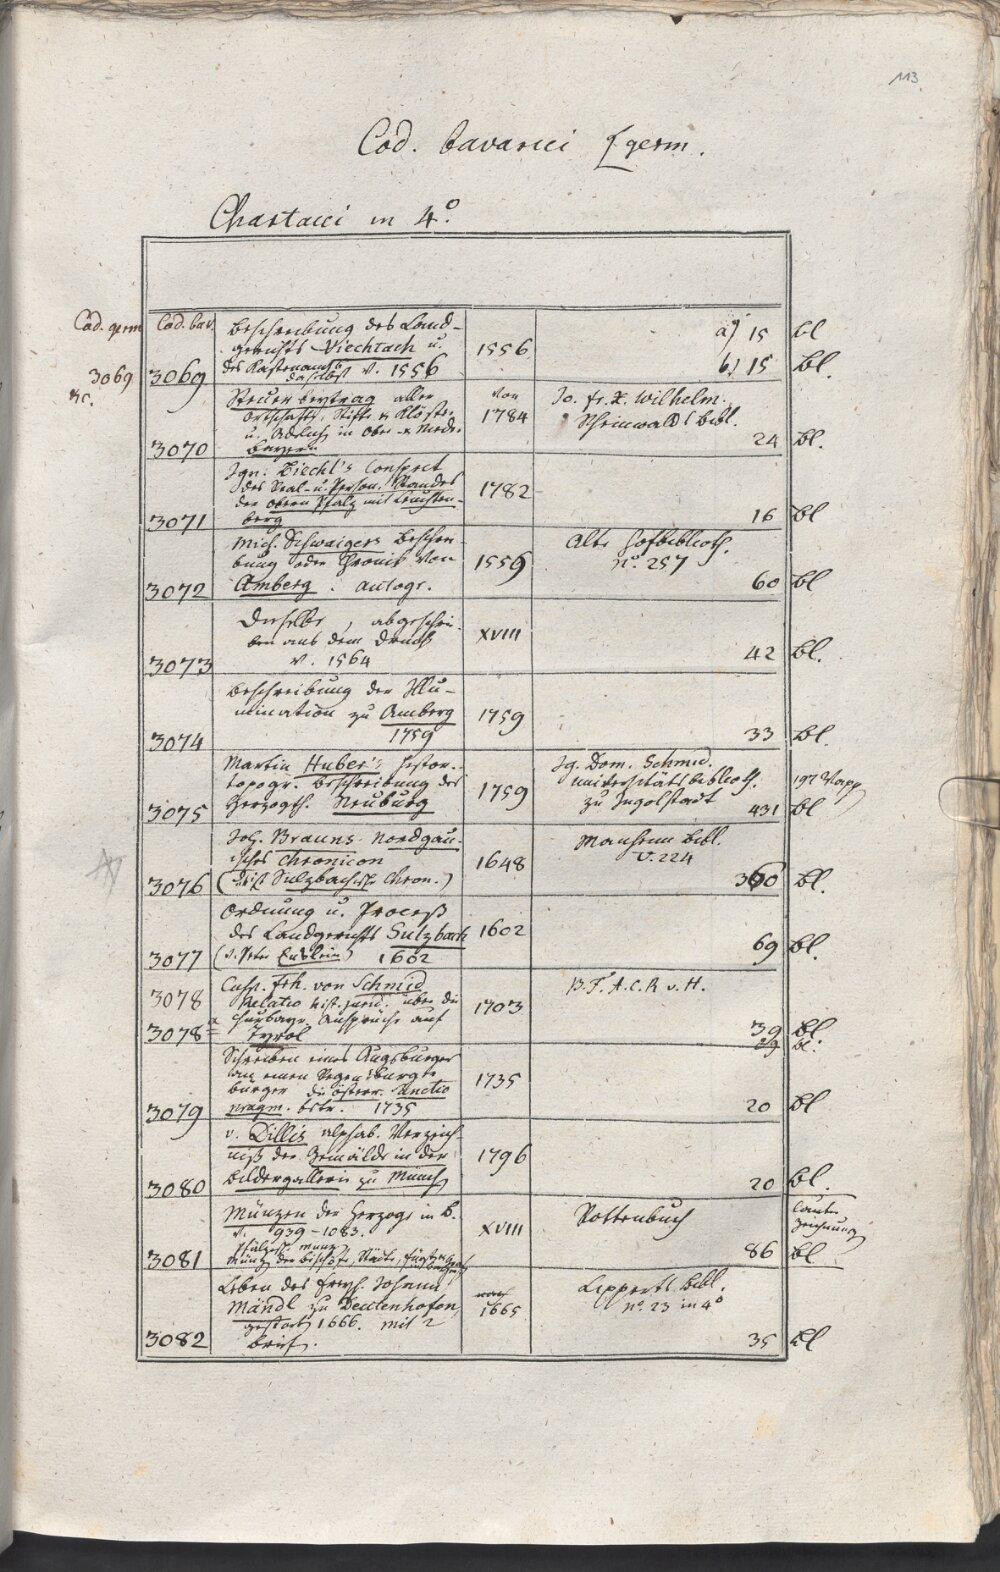 113
Cod. bavarici [germ.
Chartacei in 4°.
Cod. germ
Cod. bav.
3069
rc.
3069
Beschreibung des Land-
gerichts Viechtach u.
des Kastenamts
daselbst v. 1556
1556
a) 15 bl
b) 15 bl.
3070
Steuer beytrag aller
Ortschaft, Stifte u Klöster
u. Adelich in Ober u Nieder
Bayern
von
1784
Jo. fr. X. Wilhelm.
Scheinwald bibl.
24 bl.
3071
Ign. Biechl's Conspect
des Real- u. Person. Standes
der obern Pfalz mit Leuchten-
berg
1782
16 bl
3072
Mich. Schwaigers Beschrei-
bung oder Chronik von
Amberg . autogr.
1559
Alte Hofbiblioth.
n° 257
60 bl
3073
Dieselbe, abgeschrie-
ben aus dem Druck
v. 1564
XVIII
42 bl.
3074
Beschreibung der Illu-
mination zu Amberg
1759
1759
33 bl.
3075
Martin Huber's histor.
topogr. Beschreibung des
Herzogth. Neuburg
1759
Ig. Dom. Schmid.
Universitätsbiblioth.
zu Ingolstadt
431 bl
197 Wapp
3076
Joh. Brauns Nordgau-
isches Chronicon
( Sulzbachische Chron.)
1648
Manheim bibl.
V. 224
360 bl.
3077
Ordnung u. Proceß
des Landgerichts Sulzbach
(v. Peter Endlein) 1602
1602
69 bl.
3078
3078 a
Casp. Frh. von Schmid
Relatio hist. jurid. über die
churbayr. Ansprüche auf
Tyrol
1703
B. F. A. C. R. v. H.
39 bl
39 bl.
3079
Schreiben eines Augsburger
an einen Regensburger
bürger die österr. Sanctio
pragm. betr. 1735
1735
20 bl
3080
v. Dillis alphab. Verzeich-
niß der Gemälde in der
Bildergallerie zu Münch
1796
20 bl.
3081
Münzen der Herzoge in B.
v. 939-1083.
Pfälzisch. Münz
Münz der Bischöfe, Städte,
XVIII
Rottenbuch
86 bl
lauter
Zeichnung
3082
Leben des Freyh. Johann
Mändl zu Deutenhofen
gestorb 1666. mit 2
brief.
nach
1665
Lipperts bibl.
n° 23 in 4°
35 bl